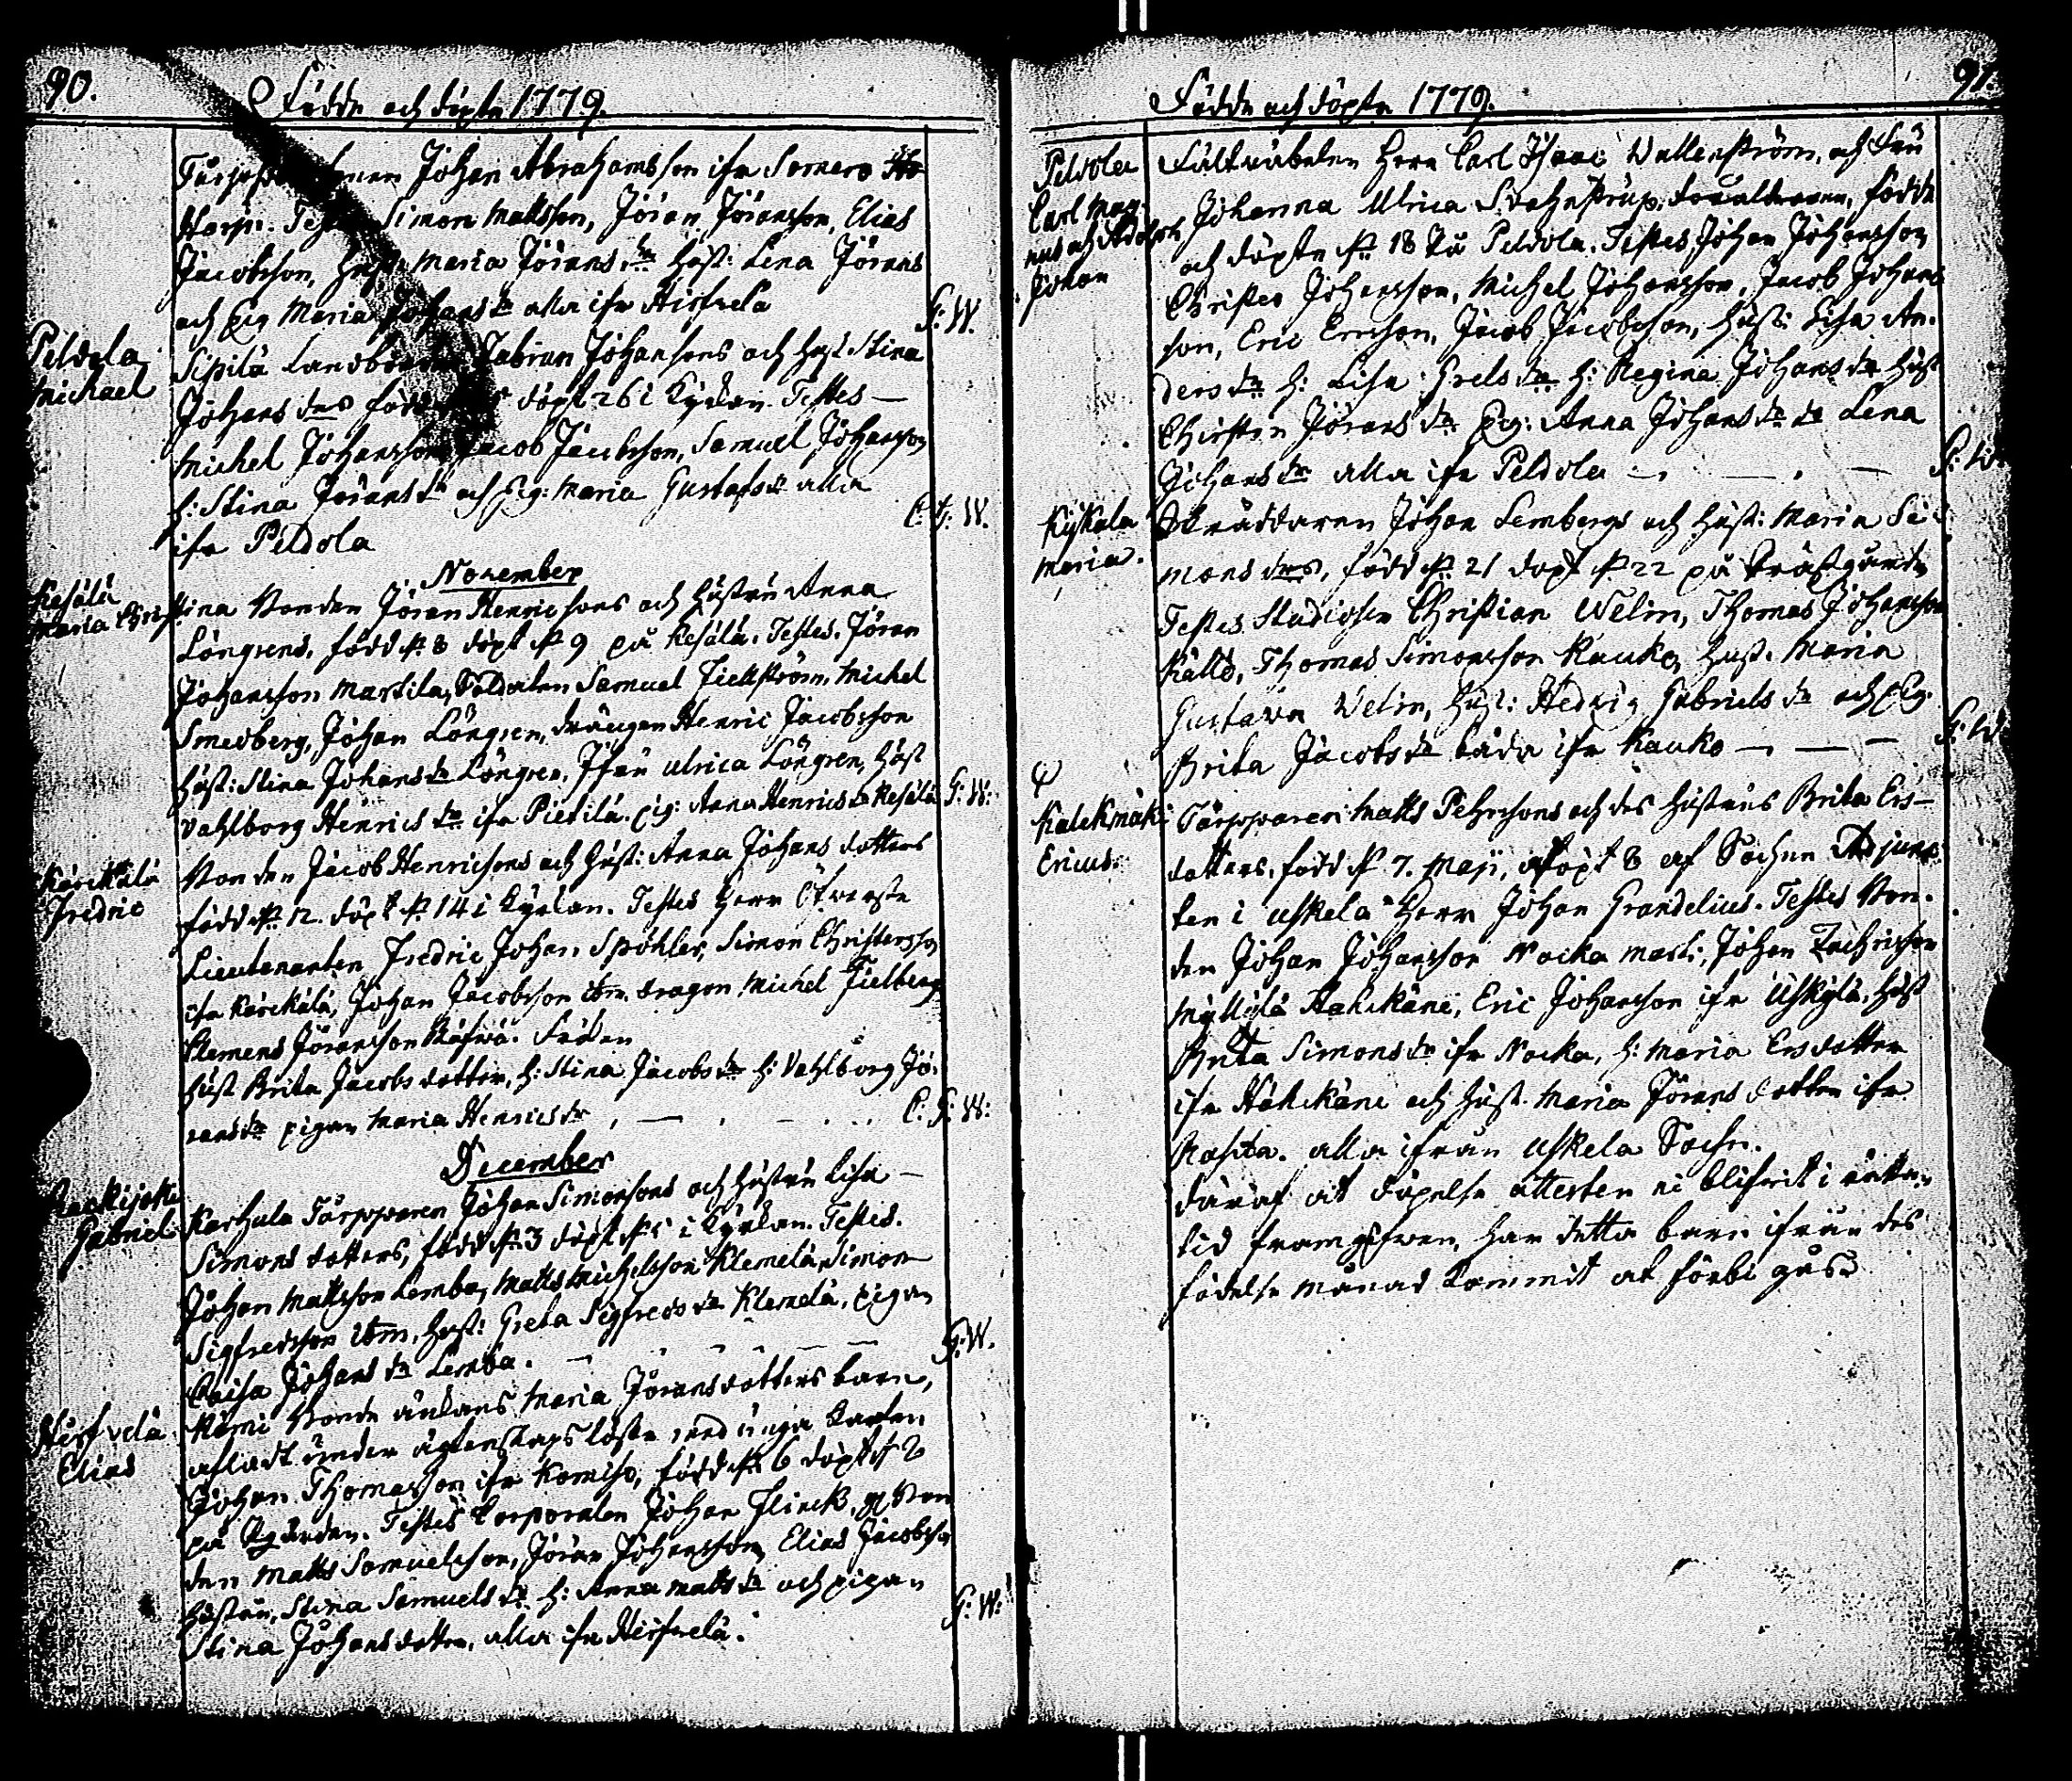 90.
Födde och döpte 1779.
Johan Abrahamsson ifr Somero
Simon Mattsson, Jöran Jöransson, Elias
Jacobsson, Hust: Maria Jörans dr Hust: Lena Jörans
och Pig Maria Johans dr alla ifr Hirfvela
G: W.
Peldola
Michael
Sipilä Landbonden Johansons och Hust Stina
Johans drs född döpt 26 i Kyrkan. Testes —
Michel Johansson Jacob Jacobsson, Samuel Johansson
h: Stina Jörans dr och Pig: Maria Gustafs dr alla
ifr Peldola
C. G: W.
November
Kesälä
Maria Christina
Bonden Jöran Henricsons och Hustru Anna
Löngrens, född d. 8 döpt d. 9 på Kesälä. Testes. Jöran
Johansson Martila, Soldaten Samuel Fiellström, Michel
Smedberg, Johan Löngren, Drängen Henric Jacobsson
Hust: Stina Johans dr Löngren, Jfru Ulrica Löngren, Hust
Vahlborg Henrics dr ifr Pietilä. Pig: Anna Henrics dr Kesälä
G: W:
Kärckälä
Fredric
Bonden Jacob Henricsons och Hust: Anna Johans dotters
född d. 12. döpt d. 14 i Kyrkan. Testes Herr Öfverste
Lieutenanten Fredric Johan Spöhler, Simon Christersson
ifr Kärckälä, Johan Jacobsson ibm. Dragon Michel Fielberg
Clemens Jöransson
Hust Brita Jacobs dotter, h: Stina Jacobs dr h: Vahlborg Jö-
rans dr pigan Maria Henrics dr
C: G: W:
December
Gabriel
Karhula Torpparen Johan Simonsons och Hustru Lisa
Simons dotters, född d. 3 döpt d. 5 i Kyrkan. Testes.
Johan Mattsson Lemba, Matts Michelsson Klemelä, Simon
Sigfredsson ibm, Hust: Greta Sigfreds dr Klemelä, pigan
Caisa Johans dr Lemba.
G: W.
Hirfvelä
Elias
Kämi Bonde änkans Maria Jörans dotters barn,
afladt under ägtenskaps löfte med unga Karlen
Johan Thomasson ifr Komiso, född d. 6 döpt d
på Pgården. Testes Corporalen Johan Flinck, Bon
den Matts Samuelsson, Jöran Johansson, Elias Jacobsson
Hustru, Stina Samuels dr h: Anna Matts dr och pigan
Stina Johans dotter, alla ifr Hirfvelä.
G: W:
91.
Födde och döpte 1779.
Peldola
Carl Mag-
nus och Adolph
Johan
Fältväbelen Herr Carl Isaac Wallenström, och Fru
Johanna Ulrica födde
och döpte d. 18 på Peldola. Testes Johan Johansson
Christer Johansson, Michel Johansson, Jacob Johans
son, Eric Ericsson, Jacob Jacobsson, Hust: Lisa An-
ders dr h: Lisa Grels dr h: Regina Johans dr Hust
Christin Jörans dr Pig: Anna Johans dr dr Lena
Johans dr alla ifr Peldola
G: W.
Kyskala
Maria.
Skräddaren Johan Lembergs och Hust: Maria Si-
mons drs, född d. 21 döpt d. 22 på Prästgården
Testes Studiosen Christian Welin, Thomas Johansson
Källo, Thomas Simonsson Kauko, Hust. Maria
Gustava Welin, Hust: Hedvig Gabriels dr och Pig.
Brita Jacobs dr båda ifr Kauko
G: W.
Kalckmäki
Ericus.
Torpparen Matts Pehrsons och des Hustrus Brita Ers-
dotters, född d. 7. Maji, döpt 8 af Sochne Adjunc-
ten i Uskela Herr Johan Grandelius. Testes Bon-
den Johan Johansson Nocka Matti, Johan Zachrisson
Myllylä Hakikäne, Eric Johansson ifr Uskylä, Hust
Brita Simons dr ifr Nocka, h: Maria Ersdotter
ifr Hakikäne och Hust. Maria Jörans dotter ifr
alla ifrån Uskela Sochn.
däraf at döpelse attesten ei blifvit i rättan
tid framgifven, har detta barn ifrån des
födelse månad kommit at förbi gås